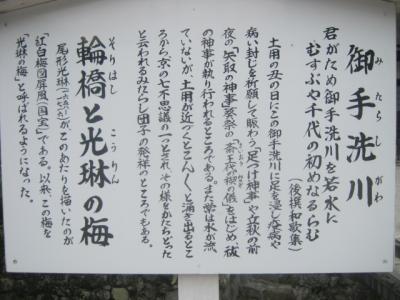 御手洗川
みたらしがわ
君がため御手洗川を若水に
むすぶや千代の初めなるらむ
（後撰和歌集）
土用の丑の日にこの御手洗川に足を浸し疫病や
病い封じを祈願して賑わう「足つけ神事」や立秋の前
夜の「矢取の神事」葵祭の「斎王代の禊の儀」をはじめ、祓
の神事が執り行われるところである。また常は水が流れ
ていないが、土用が近づくとこんこんと湧き出るとこ
ろから京の七不思議の一つとされ、その様をかたどった
と云われるみたらし団子の発祥のところでもある。
輪橋と光琳の梅
そりはし
こうりん
尾形光琳がこのあたりを描いたのが
「紅白梅図屏風（国宝）」である。以来、この梅を
「光琳の梅」と呼ばれるようになった。